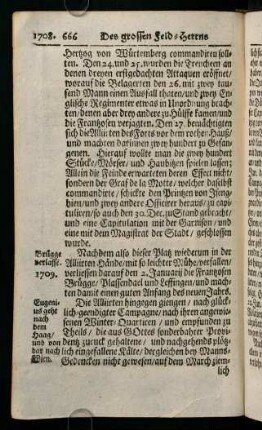 1708. 666 Des grossen Feld-Herrns
Hertzog von Würtemberg commandiren sollten.
Den 24. und 25. wurden die Trencheen an
denen dreyen erstgedachten Attaquen eröffnet/
worauf die Belagerten den 26. mit zwey tausend
Mann einen Ausfall thaten/ und zwey Englische
Regimenter etwas in Unordnung brachten/
denen aber drey andere zu Hülffe kamen/ und
die Frantzosen verjagten. Den 27. bemächtigten
sich die Alliirten des Forts vor dem rothen-Hauß/
und machten darinnen zwey hundert zu Gefangenen.
Hierauf wollte man die zwey hundert
Stücke/ Mörser/ und Haubitzen spielen lassen;
Allein die Feinde erwarteten deren Effect nicht/
sondern der Graf de la Motte/ welcher daselbst
commandirte/ schickte den Printzen von Isenghien/
und zwey andere Officirer heraus/ zu capituliren/
so auch den 30. Dec. zu Stand gebracht/
und eine Capitulation mit der Garnison/ und
eine mit dem Magistrat der Stadt/ geschlossen
wurde.
Brügge verlass. Nachdem also dieser Platz wiederum in der
Alliirten Hände/ mit so leichter Mühe/ verfallen/
1709. verliessen darauf den 2. Januarii die Frantzosen
Brügge/ Plassendael und Leffingen/ und machten
damit einen guten Anfang des neuen Jahrs.
Eugenius geht nach dem Haag/ und von dar nach Wien. Die Alliirten hingegen giengen/ nach glücklich-geendigter
Campagne/ nach ihren angewiesenen
Winter-Quartieren/ und empfunden zu
Theils/ die aus GOttes sonderbahrer Providentz
zuruck gehaltene/ und nachgehends plötzlich
eingefallene Kälte/ dergleichen bey Manns-
Gedencken nicht gewesen/ auf dem March ziemlich